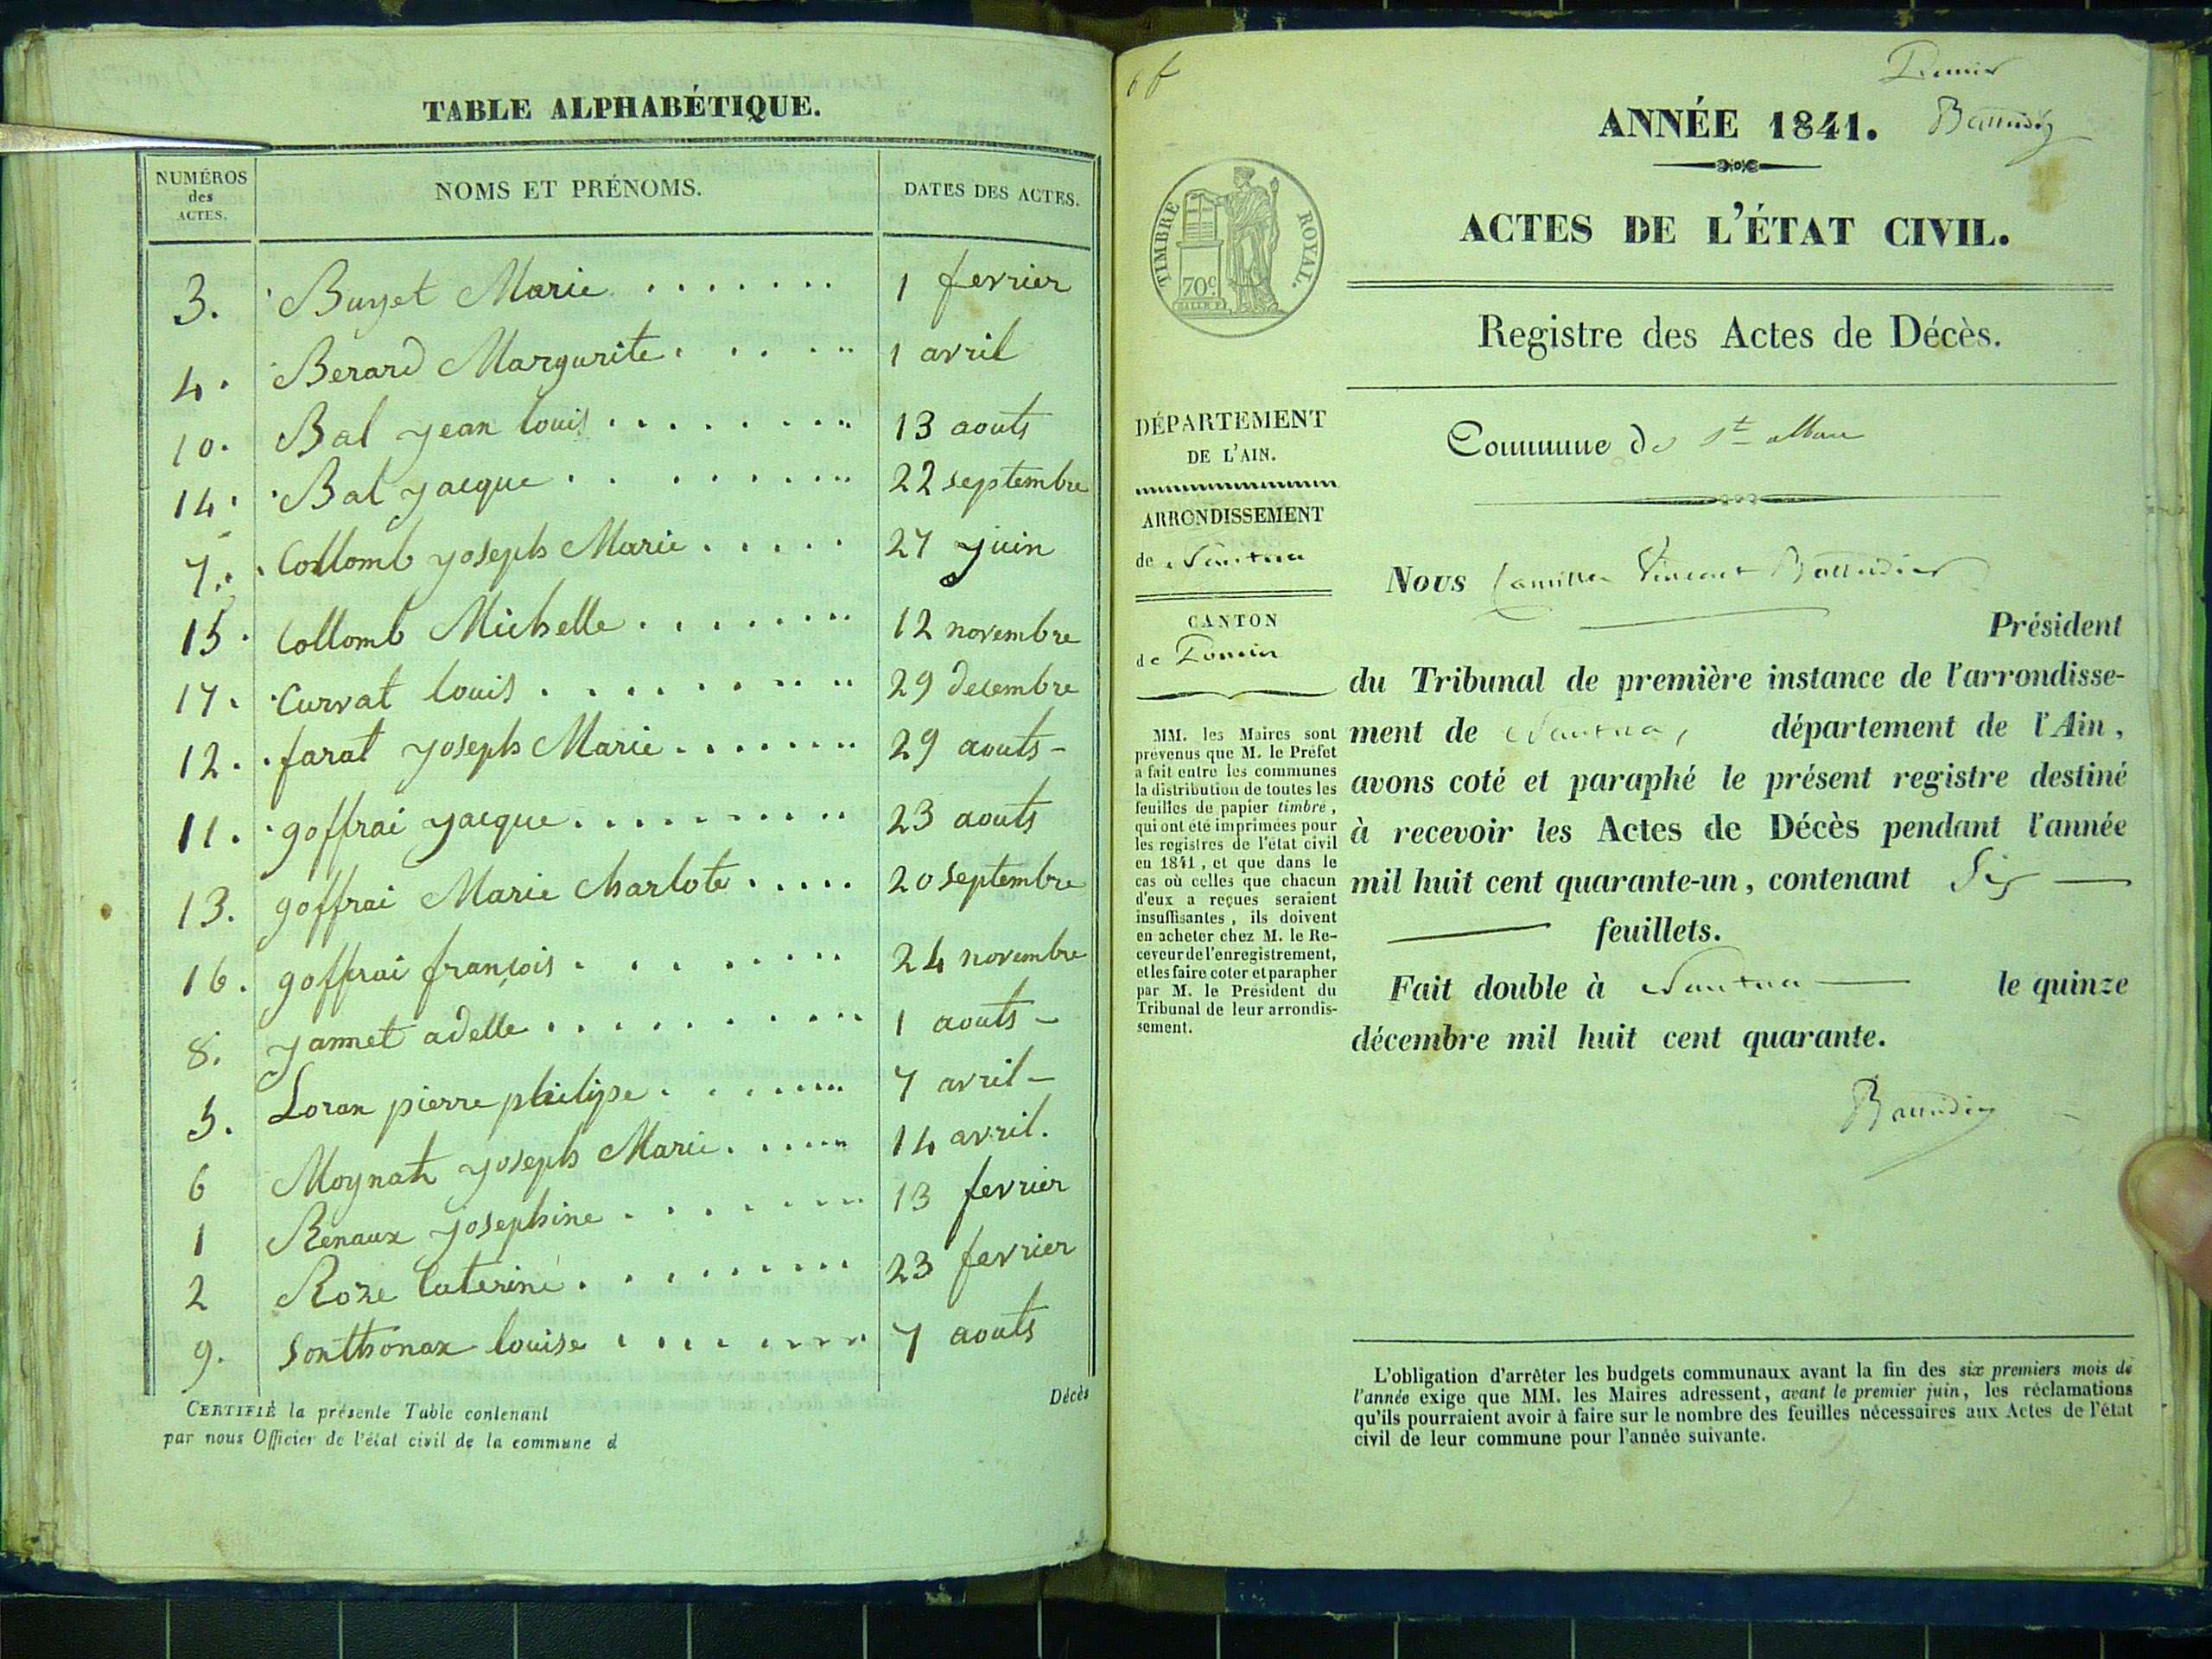 TABLE ALPHABÉTIQUE.
NUMÉROS des ACTES. NOMS ET PRÉNOMS. DATES DES ACTES.
3. Buyet Marie . . . . . . . 1 fevrier
4. Berard Margurite . . . . . . 1 avril
10. Bal yean louis . . . . . . . . 13 aouts
14. Bal yacque . . . . . . . . 22 septembre
7. Collomb yoseph Marie . . . . . 27 juin
15. Collomb Michelle . . . . . . . . 12 novembre
17. Curvat louis . . . . . . . . . 29 decembre
12. farat yoseph Marie . . . . . . . 29 aouts -
11. goffrai yacque . . . . . . . . . . 23 aouts
13. goffrai Marie charlote . . . . . 20 septembre
16. goffrai françois . . . . . . . . 24 novembre
8. yannet adelle . . . . . . . . . . 1 aouts -
5. Loran pierre philipe . . . . . . . 7 avril -
6 Moynat yoseph Marie . . . . . . 14 avril.
1 Renaux josephine . . . . . . . . 13 fevrier
2 Roze caterine . . . . . . . . . . 23 fevrier
9. Sonthonax louise . . . . . . . . 7 aouts
Décès
CERTIFIÉ la présente Table contenant
par nous Officier de l'état civil de la commune d
ANNÉE 1841.
TIMBRE ROYAL.
70c
ACTES DE L'ÉTAT CIVIL.
Registre des Actes de Décès.
DÉPARTEMENT
DE L'AIN.
ARRONDISSEMENT
de Nantua
CANTON
de Poncin
MM. les Maires sont
prévenus que M. le Préfet
a fait entre les communes
la distribution de toutes les
feuilles de papier timbré,
qui ont été imprimées pour
les registres de l'état civil
en 1841, et que dans le
cas où celles que chacun
d'eux a reçues seraient
insuffisantes, ils doivent
en acheter chez M. le Re-
ceveur de l'enregistrement,
et les faire coter et parapher
par M. le Président du
Tribunal de leur arrondis-
sement.
Commune de St alban
Nous Camille Vincent
Président
du Tribunal de première instance de l'arrondisse-
ment de Nantua, département de l'Ain,
avons coté et paraphé le présent registre destiné
à recevoir les Actes de Décès pendant l'année
mil huit cent quarante-un, contenant Six
feuillets.
Fait double à Nantua le quinze
décembre mil huit cent quarante.
L'obligation d'arrêter les budgets communaux avant la fin des six premiers mois de
l'année exige que MM. les Maires adressent, avant le premier juin, les réclamations
qu'ils pourraient avoir à faire sur le nombre des feuilles nécessaires aux Actes de l'état
civil de leur commune pour l'année suivante.